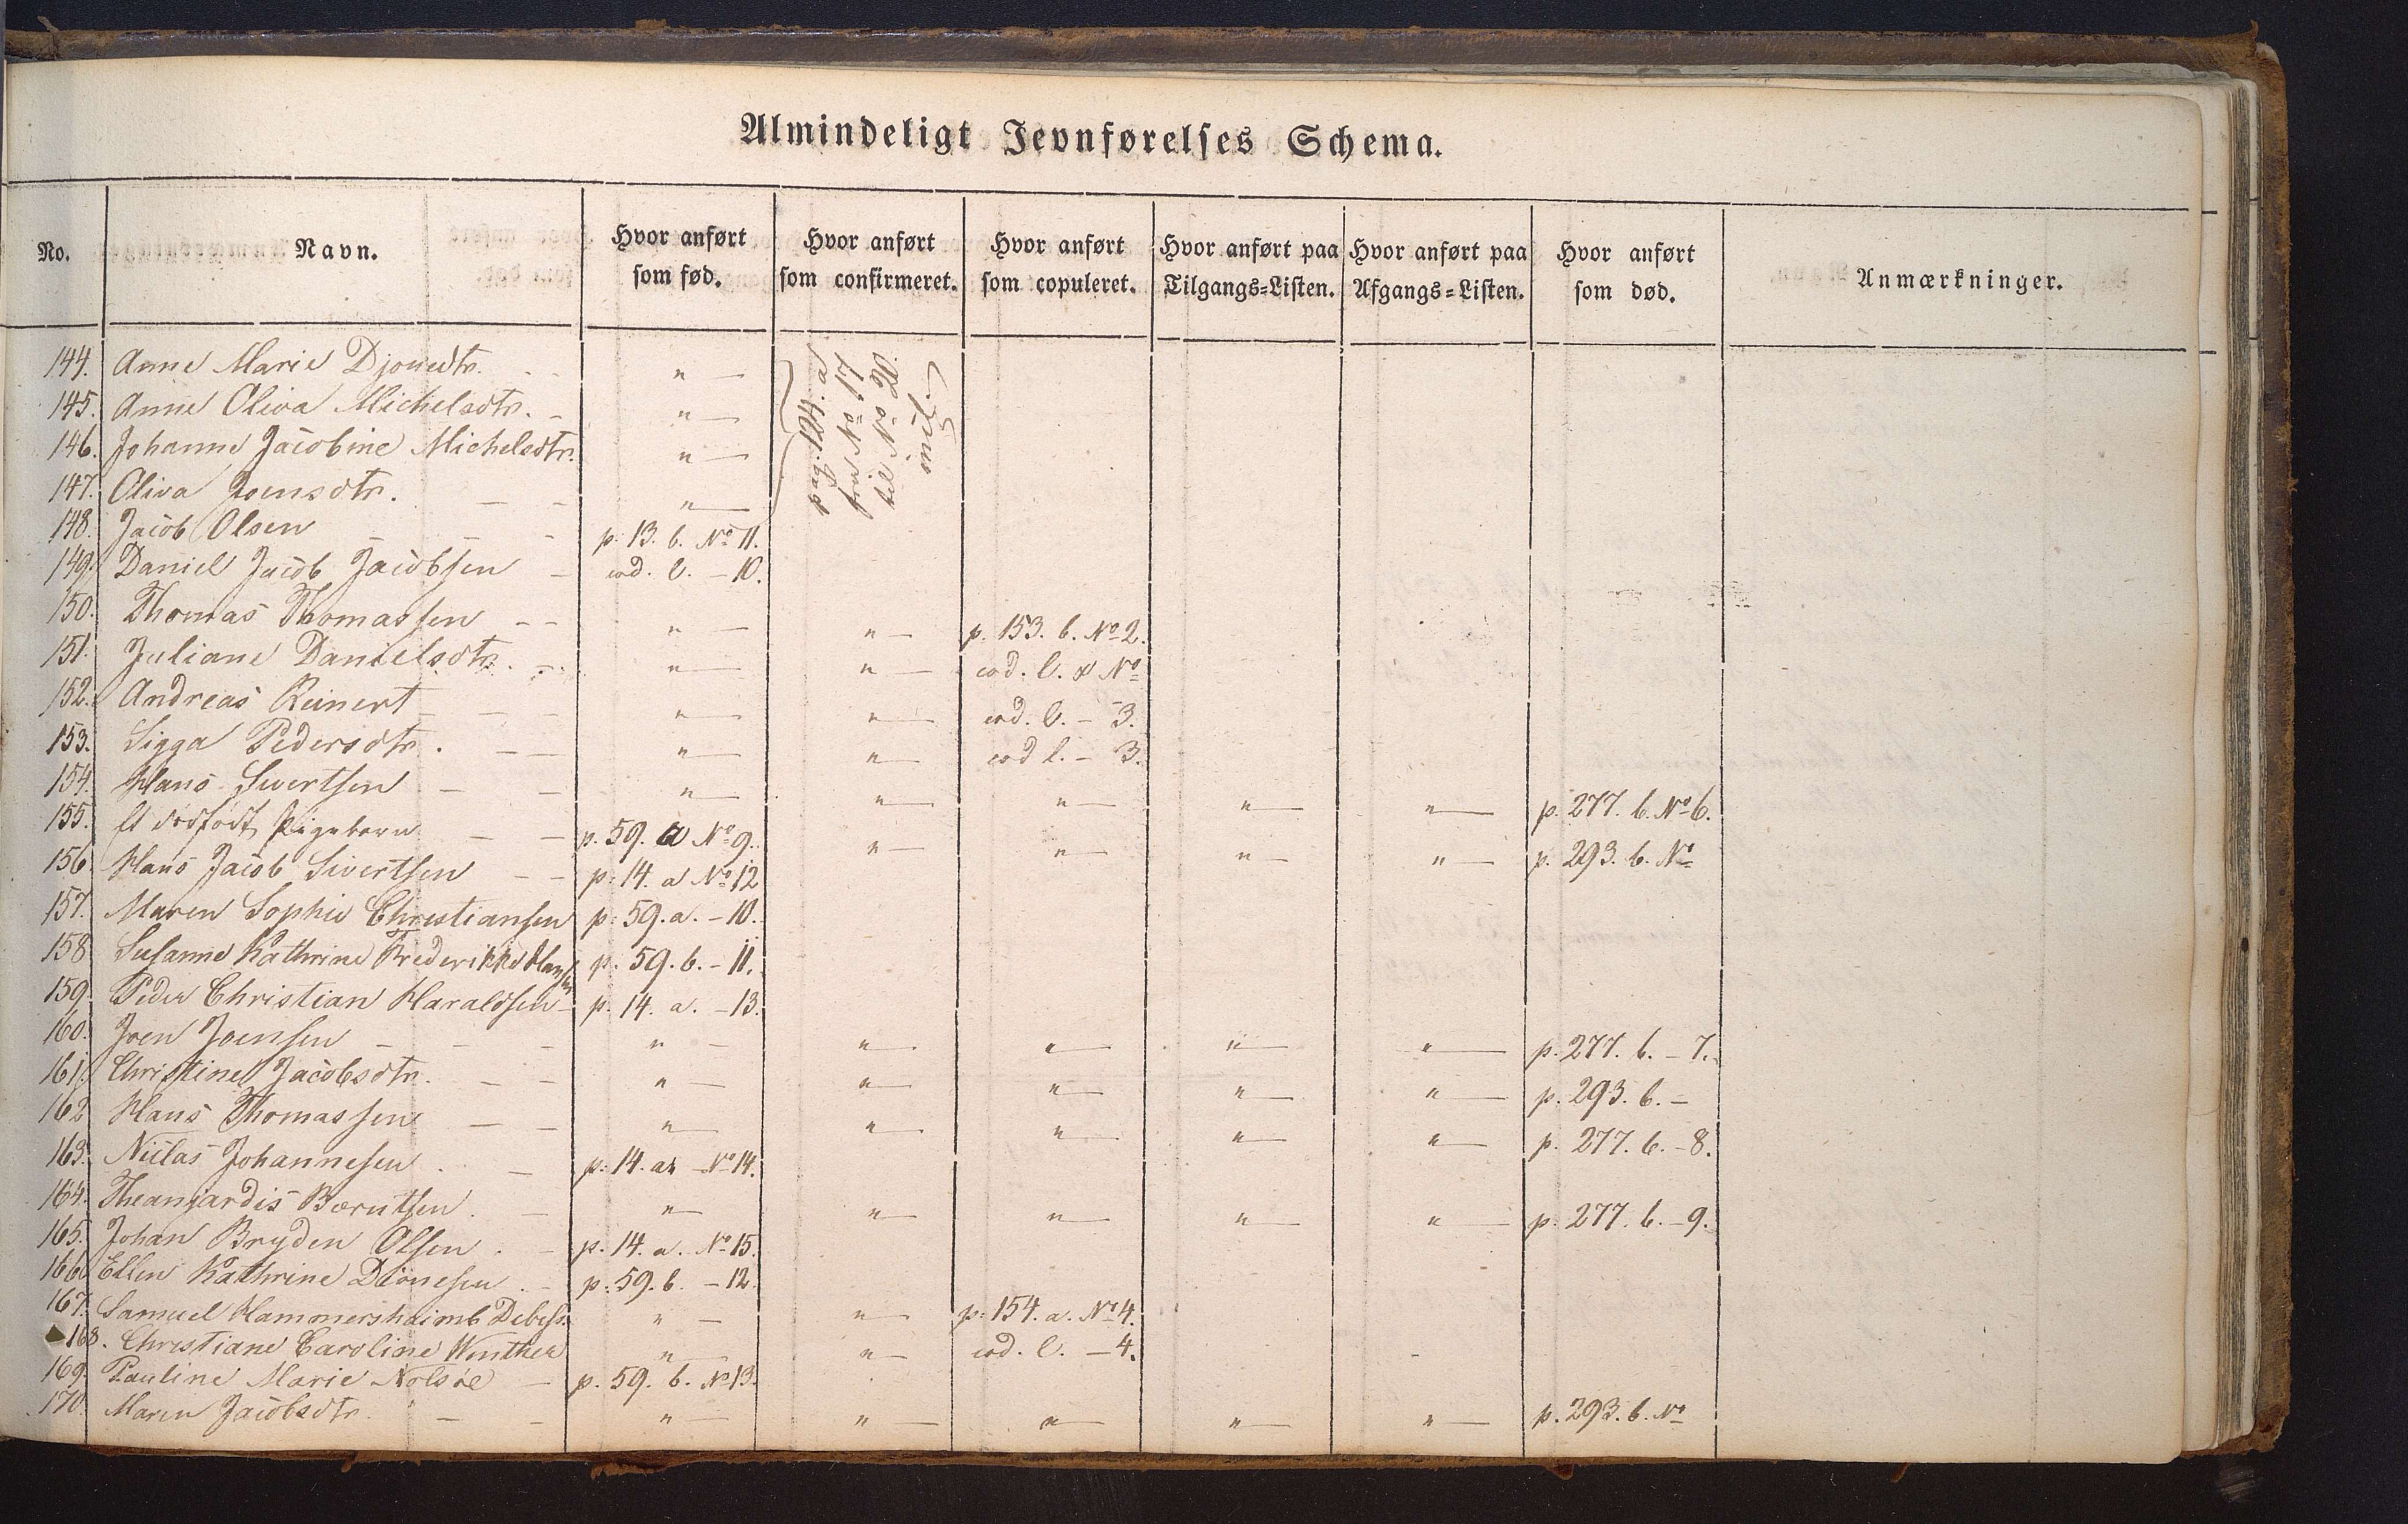 Almindeligt Jevnførelses Schema.
No. Navn. Hvor anført som fød. Hvor anført som confirmeret. Hvor anført som copuleret. Hvor anført paa Tilgangs=Listen. Hvor anført paa Afgangs=Listen. Hvor anført som død. Anmærkninger.
144. Anne Marie Djonedtr. - - " —
145. Anne Oliva Michelsdtr. - " —
146. Johanne Jacobine Michelsdtr. " —
147. Oliva Joensdtr. — - " —
fra No 17
til No 20.
incl.
148. Jacob Olsen - — - p. 13. b. No 11.
149. Daniel Jacob Jacobsen - eod. l. - 10.
150. Thomas Thomassen - - " — " — p. 153. b. No 2.
151. Juliane Danielsdtr. - - " — " — eod. l. & No
152. Andreas Reinert - — - " — " — eod. l. - 3.
153. Sigga Pedersdtr. - — " — " — eod l. - 3.
154. Hans Sivertsen - - " — " — " — " — " — p. 277. b. No 6.
155. Et dødfødt Pigebarn - - p. 59. a No 9. " — " — " — " — p. 293. b. No
156. Hans Jacob Sivertsen - - p. 14. a No 12
157. Maren Sophie Christiansen p. 59. a. - 10.
158 Susanne Kathrine Frederikke Hansen p. 59. b. - 11.
159. Peder Christian Haraldsen - p. 14. a. - 13.
160. Joen Joensen - - - " - " — " — " — " — p. 277. b. - 7.
161. Christine Jacobsdtr. - - " — " — " — " — " — p. 293. b. -
162 Hans Thomassen - - " — " — " — " — " — p. 277. b. - 8.
163. Niclas Johannesen . - p. 14. a - No 14.
164. Bærentsen . - " — " — " — " — " — p. 277. b. - 9.
165. Johan Bryden Olsen . - p. 14. a. No 15.
166. Ellen Kathrine Dionesen . - p. 59. b. - 12.
167. Samuel Hammershaimb Debess. " - " — p. 154. a. No 4.
168. Christiane Caroline Winther " — " — eod. l. - 4.
169. Pauline Marie Nolsøe - p. 59. b. No 13.
170. Maren Jacobsdtr. - - " — " — " — " — " — p. 293. b. No